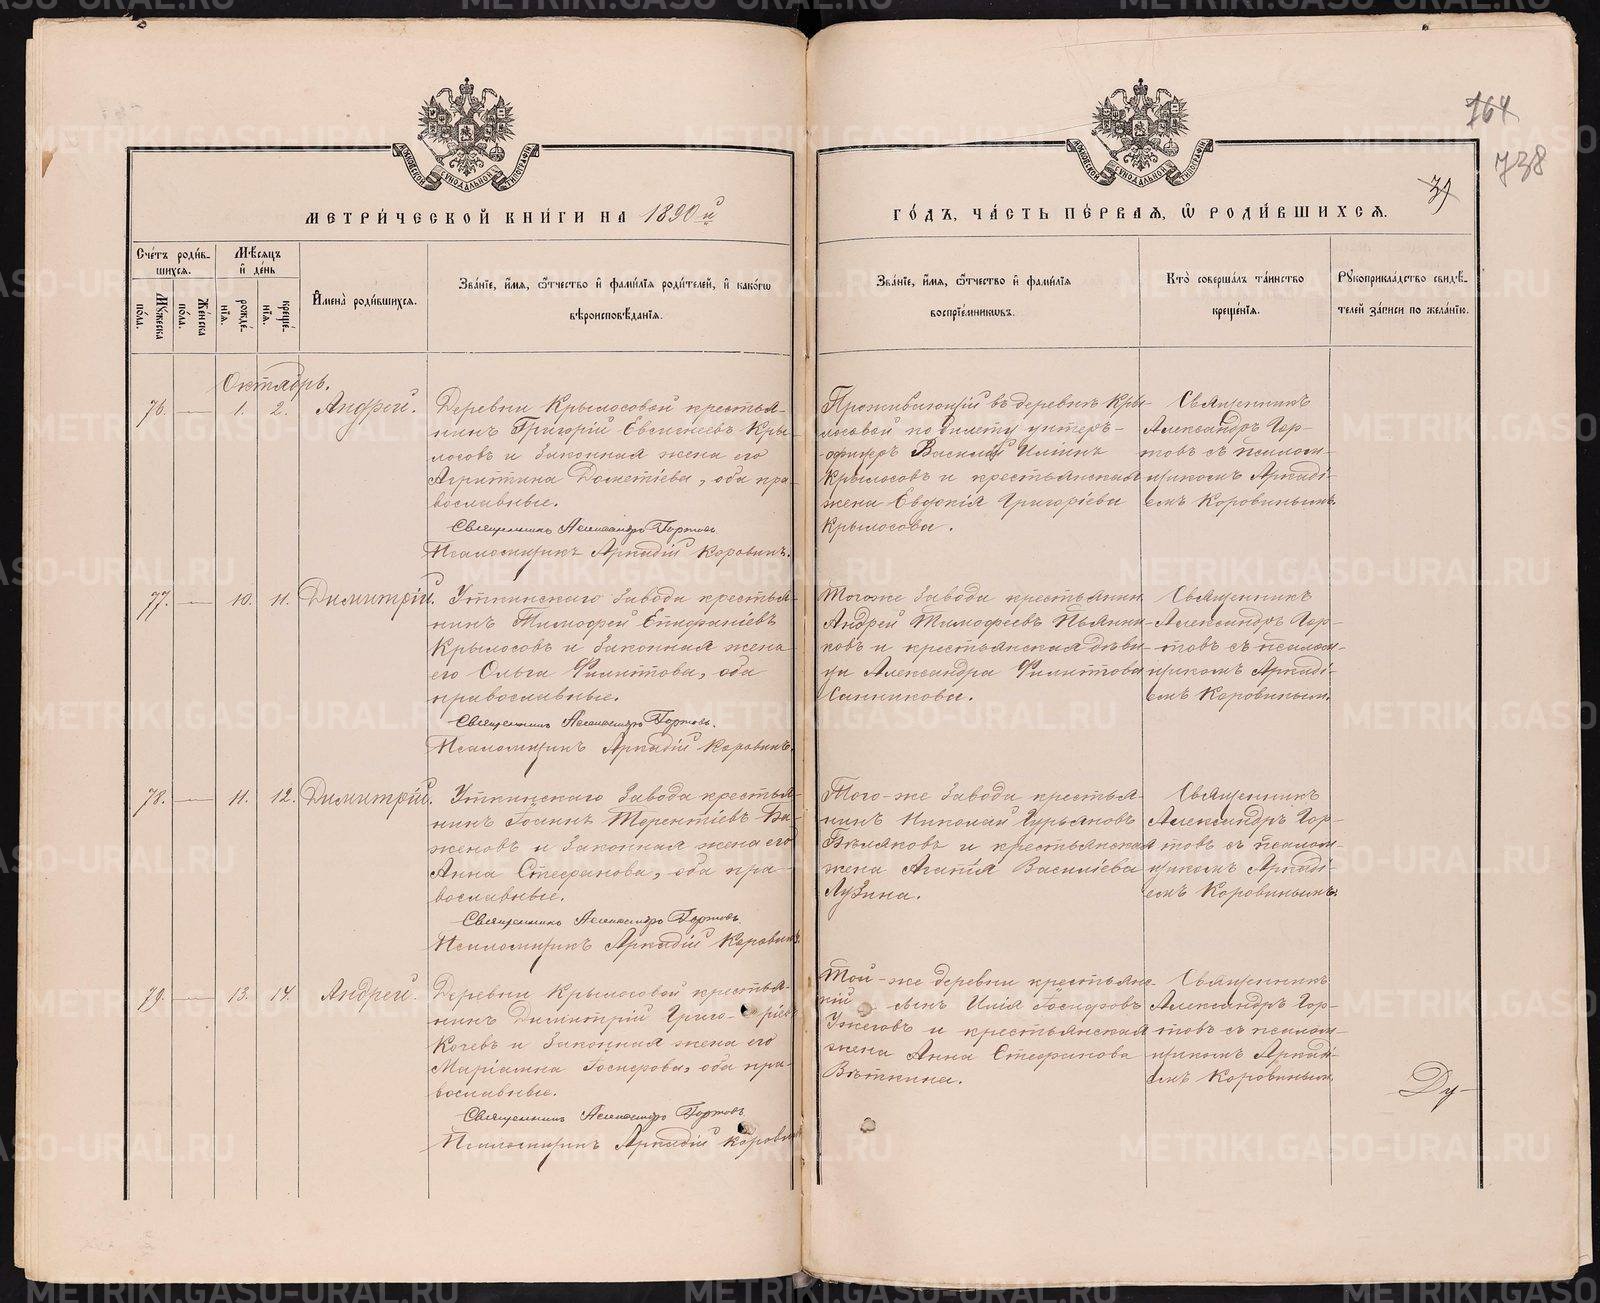 764
738
39
МОСКОВСКОЙ СѴНОДАЛЬНОЙ ТИПОГРАФІИ
МОСКОВСКОЙ СѴНОДАЛЬНОЙ ТИПОГРАФІИ
МЕТРИ́ЧЕСКОЙ КНИ́ГИ НА 1890й
ГО́ДЪ, ЧА́СТЬ ПЕ́РВАѦ, Ѡ РОДИ́ВШИХСѦ.
Сче́тъ роди́в-
шихсѧ.
Мꙋ́жеска
по́ла.
Же́нска
по́ла.
Мѣ́сѧцъ
и де́нь
рожде́-
нїѧ.
креще́-
нїѧ.
Имена̀ роди́вшихсѧ.
Зва́нїе, и́мѧ, ѻ́тчество и фами́лїѧ роди́телей, и како́гѡ
вѣроисповѣ́данїѧ.
Зва́нїе, и́мѧ, ѻ́тчество и фами́лїѧ
воспрїе́мникѡвъ.
Кто̀ соверша́лъ та́инство
креще́нїѧ.
Рꙋкоприкла́дство свидѣ́-
телей за́писи по жела́нїю.
Октябрь.
76. — 1. 2. Андрей.
Деревни Крылосовой крестья-
нинъ Григорій Евгеніевъ Кры-
лосовъ и законная жена его
Агриппина Дометіева, оба пра-
вославные.
Священникъ Александръ Гортовъ
Псаломщикъ Аркадій Коровинъ.
Проживающій въ деревнѣ Кры-
лосовой по билету унтеръ-
офицеръ Василій Ильинъ
Крылосовъ и крестьянская
жена Евдокія Григоріева
Крылосова.
Священникъ
Александръ Гор-
товъ съ псалом-
щикомъ Аркаді-
емъ Коровинымъ.
77. — 10. 11. Димитрій.
Уткинскаго завода крестья-
нинъ Тимофей Епифаніевъ
Крылосовъ и законная жена
его Ольга Филиппова, оба
православные.
Священникъ Александръ Гортовъ.
Псаломщикъ Аркадій Коровинъ.
Тогоже завода крестьянин
Андрей Тимофеевъ Пьянни-
ковъ и крестьянская дѣви-
ца Александра Филиппова
Санникова.
Священникъ
Александръ Гор-
товъ съ псалом-
щикомъ Аркаді-
емъ Коровинымъ.
78. — 11. 12. Димитрій.
Уткинскаго завода крестья-
нинъ Іоаннъ Терентіевъ Ба-
женовъ и законная жена его
Анна Стефанова, оба пра-
вославные.
Священникъ Александръ Гортовъ.
Псаломщикъ Аркадій Коровинъ.
Того-же завода крестья-
нинъ Николай Гурьяновъ
Бѣляковъ и крестьянская
жена Агапія Василіева
Лузина.
Священникъ
Александръ Гор-
товъ съ псалом-
щикомъ Аркаді-
емъ Коровинымъ.
79. — 13. 14. Андрей.
Деревни Крылосовой крестья-
нинъ Димитрій Григо-ріевъ
Кочевъ и законная жена его
Маріамна Іосифова, оба пра-
вославные.
Священникъ Александръ Гортовъ
Псаломщикъ Аркадій Коровинъ
Той-же деревни крестьянс-
кій сынъ Илія Іосифовъ
Ужеговъ и крестьянская
жена Анна Стефанова
Вяткина.
Священникъ
Александръ Гор-
товъ съ псалом-
щикомъ Аркаді-
емъ Коровинымъ
Ду-
METRIKI.GASO-URAL.RU